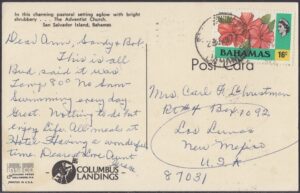 In this charming pastoral setting aglow with bright
shrubbery . . . The Adventist Church,
San Salvador Island, Bahamas
Dear Ann, Sandy & Bob,
This is all
Bud said it was
Temp 80° No Snow
Swimming every day
Great. Nothing to do but
enjoy life. All meals at
Hotel. Having a wonderful
time. Dearest love Aunt
COLUMBUS
LANDINGS
BAHAMAS
16c
Post Card
Mrs. Carl F. Christman
Rt # 4 Box 1092
Los Lunas
New Mexico
U.S.A
87031